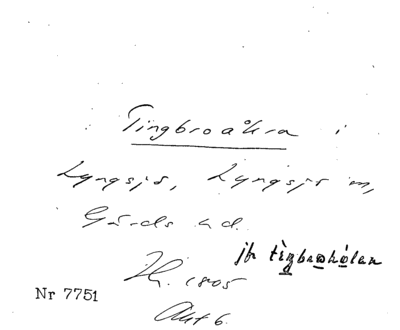 Tingbroåkra i
Lyngsjö, Lyngsjö sn,
Gärds hd.
jfr tingbroholan
Nr 7751
Akt 6.